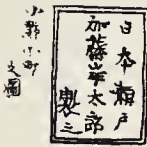 日本瀬戸
加藤岸太郎
製之
小野小町
之圖